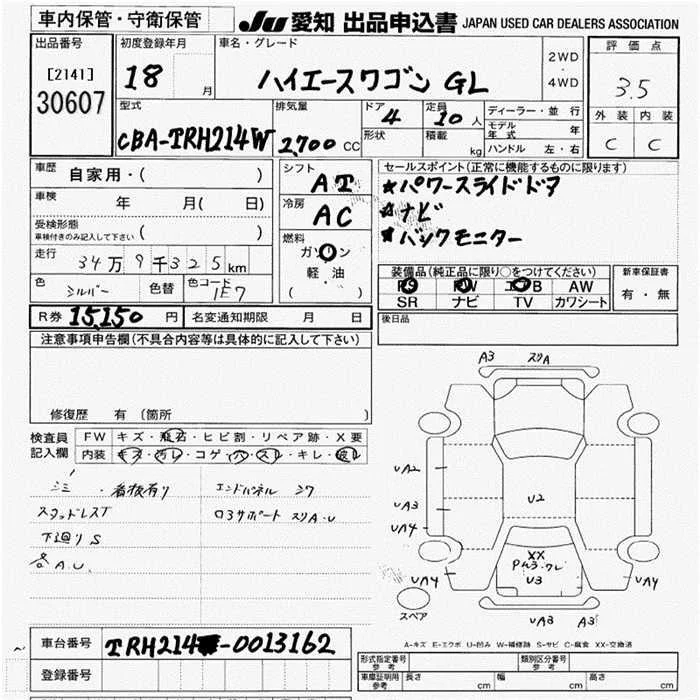 車内保管・守衛保管
JU 愛知 出品申込書 JAPAN USED CAR DEALERS ASSOCIATION
出品番号
[2141]
30607
初度登録年月
18 月
車名・グレード
ハイエースワゴン GL
2WD
・
4WD
評価点
3.5
外装 内装
C C
型式
CBA-TRH214W
排気量
2,700 CC
ドア
4
形状
定員
10 人
積載
kg
ディーラー・並行
モデル年式 年
ハンドル 左・右
車歴 自家用・( )
車検 年 月( 日)
受検形態
車検付きのみ記入して下さい ( )
走行 34万9千325km
色 シルバー 色替 色コード 1E7
シフト
AT
冷房
AC
燃料
ガソリン
軽・油
( )
セールスポイント(正常に機能するものに限ります)
★パワースライドドア
★ナビ
★バックモニター
装備品(純正品に限り○をつけてください)
PS PW エアB AW
SR ナビ TV カワシート
新車保証書
有・無
R券 15,150 円 名変通知期限 月 日
後日品
注意事項申告欄(不具合内容等は具体的に記入して下さい)
修復歴 有 (箇所 )
検査員
記入欄
FW キズ・飛石・ヒビ割・リペア跡・X要
内装 キズ・汚レ・コゲ・穴・スレ・キレ・破レ
看板有り
エンドパネル
スタッドレスT
ロアサポート スリA・U
下廻りS
各A.U.
A3 スリA
UA2
UA3
UA4
U2
XX
U3
UA4
UA4
スペア
UA3 A3
A-キズ E-エクボ U-凹み W-補修跡 S-サビ C-腐食 XX-交換済
車台番号 TRH214-0013162
登録番号
形式指定番号 参考
類別区分番号 参考
車庫証明用 参考 長さ cm 幅 cm 高さ cm